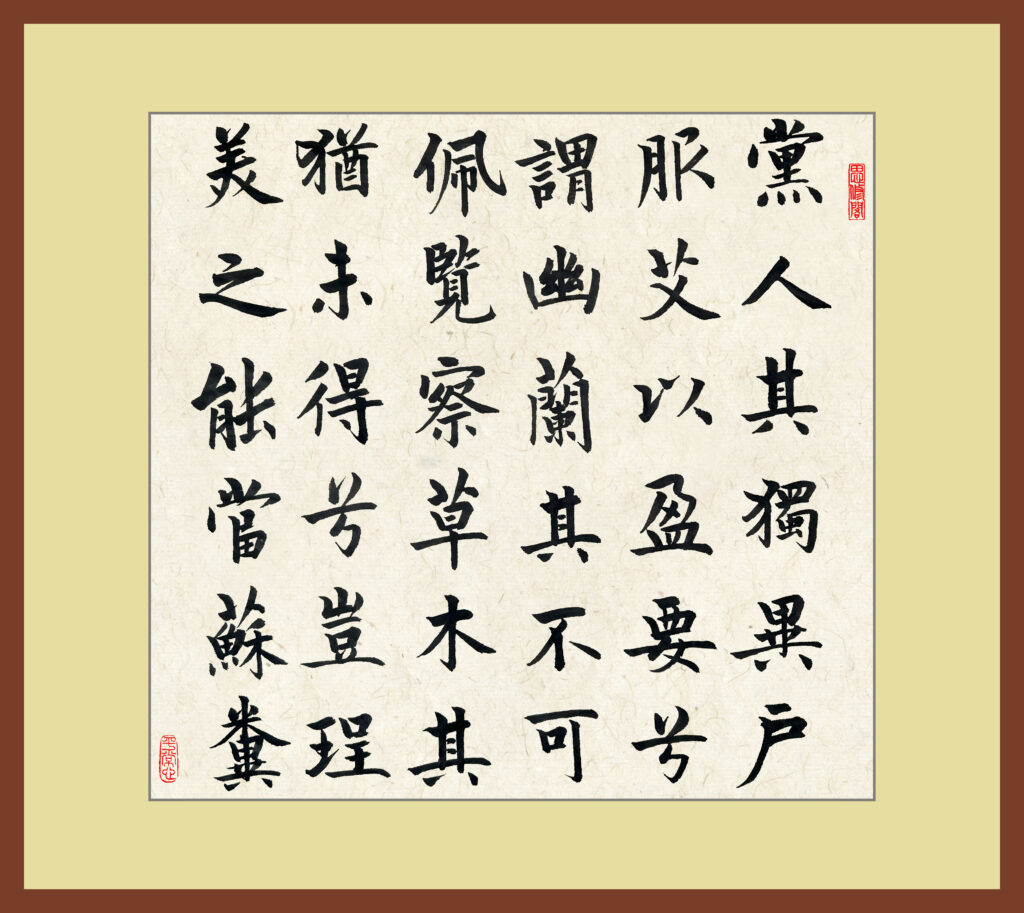 思修閣
黨人其獨異戶
服艾以盈要兮
謂幽蘭其不可
佩覽察草木其
猶未得兮豈珵
美之能當蘇糞
平常心